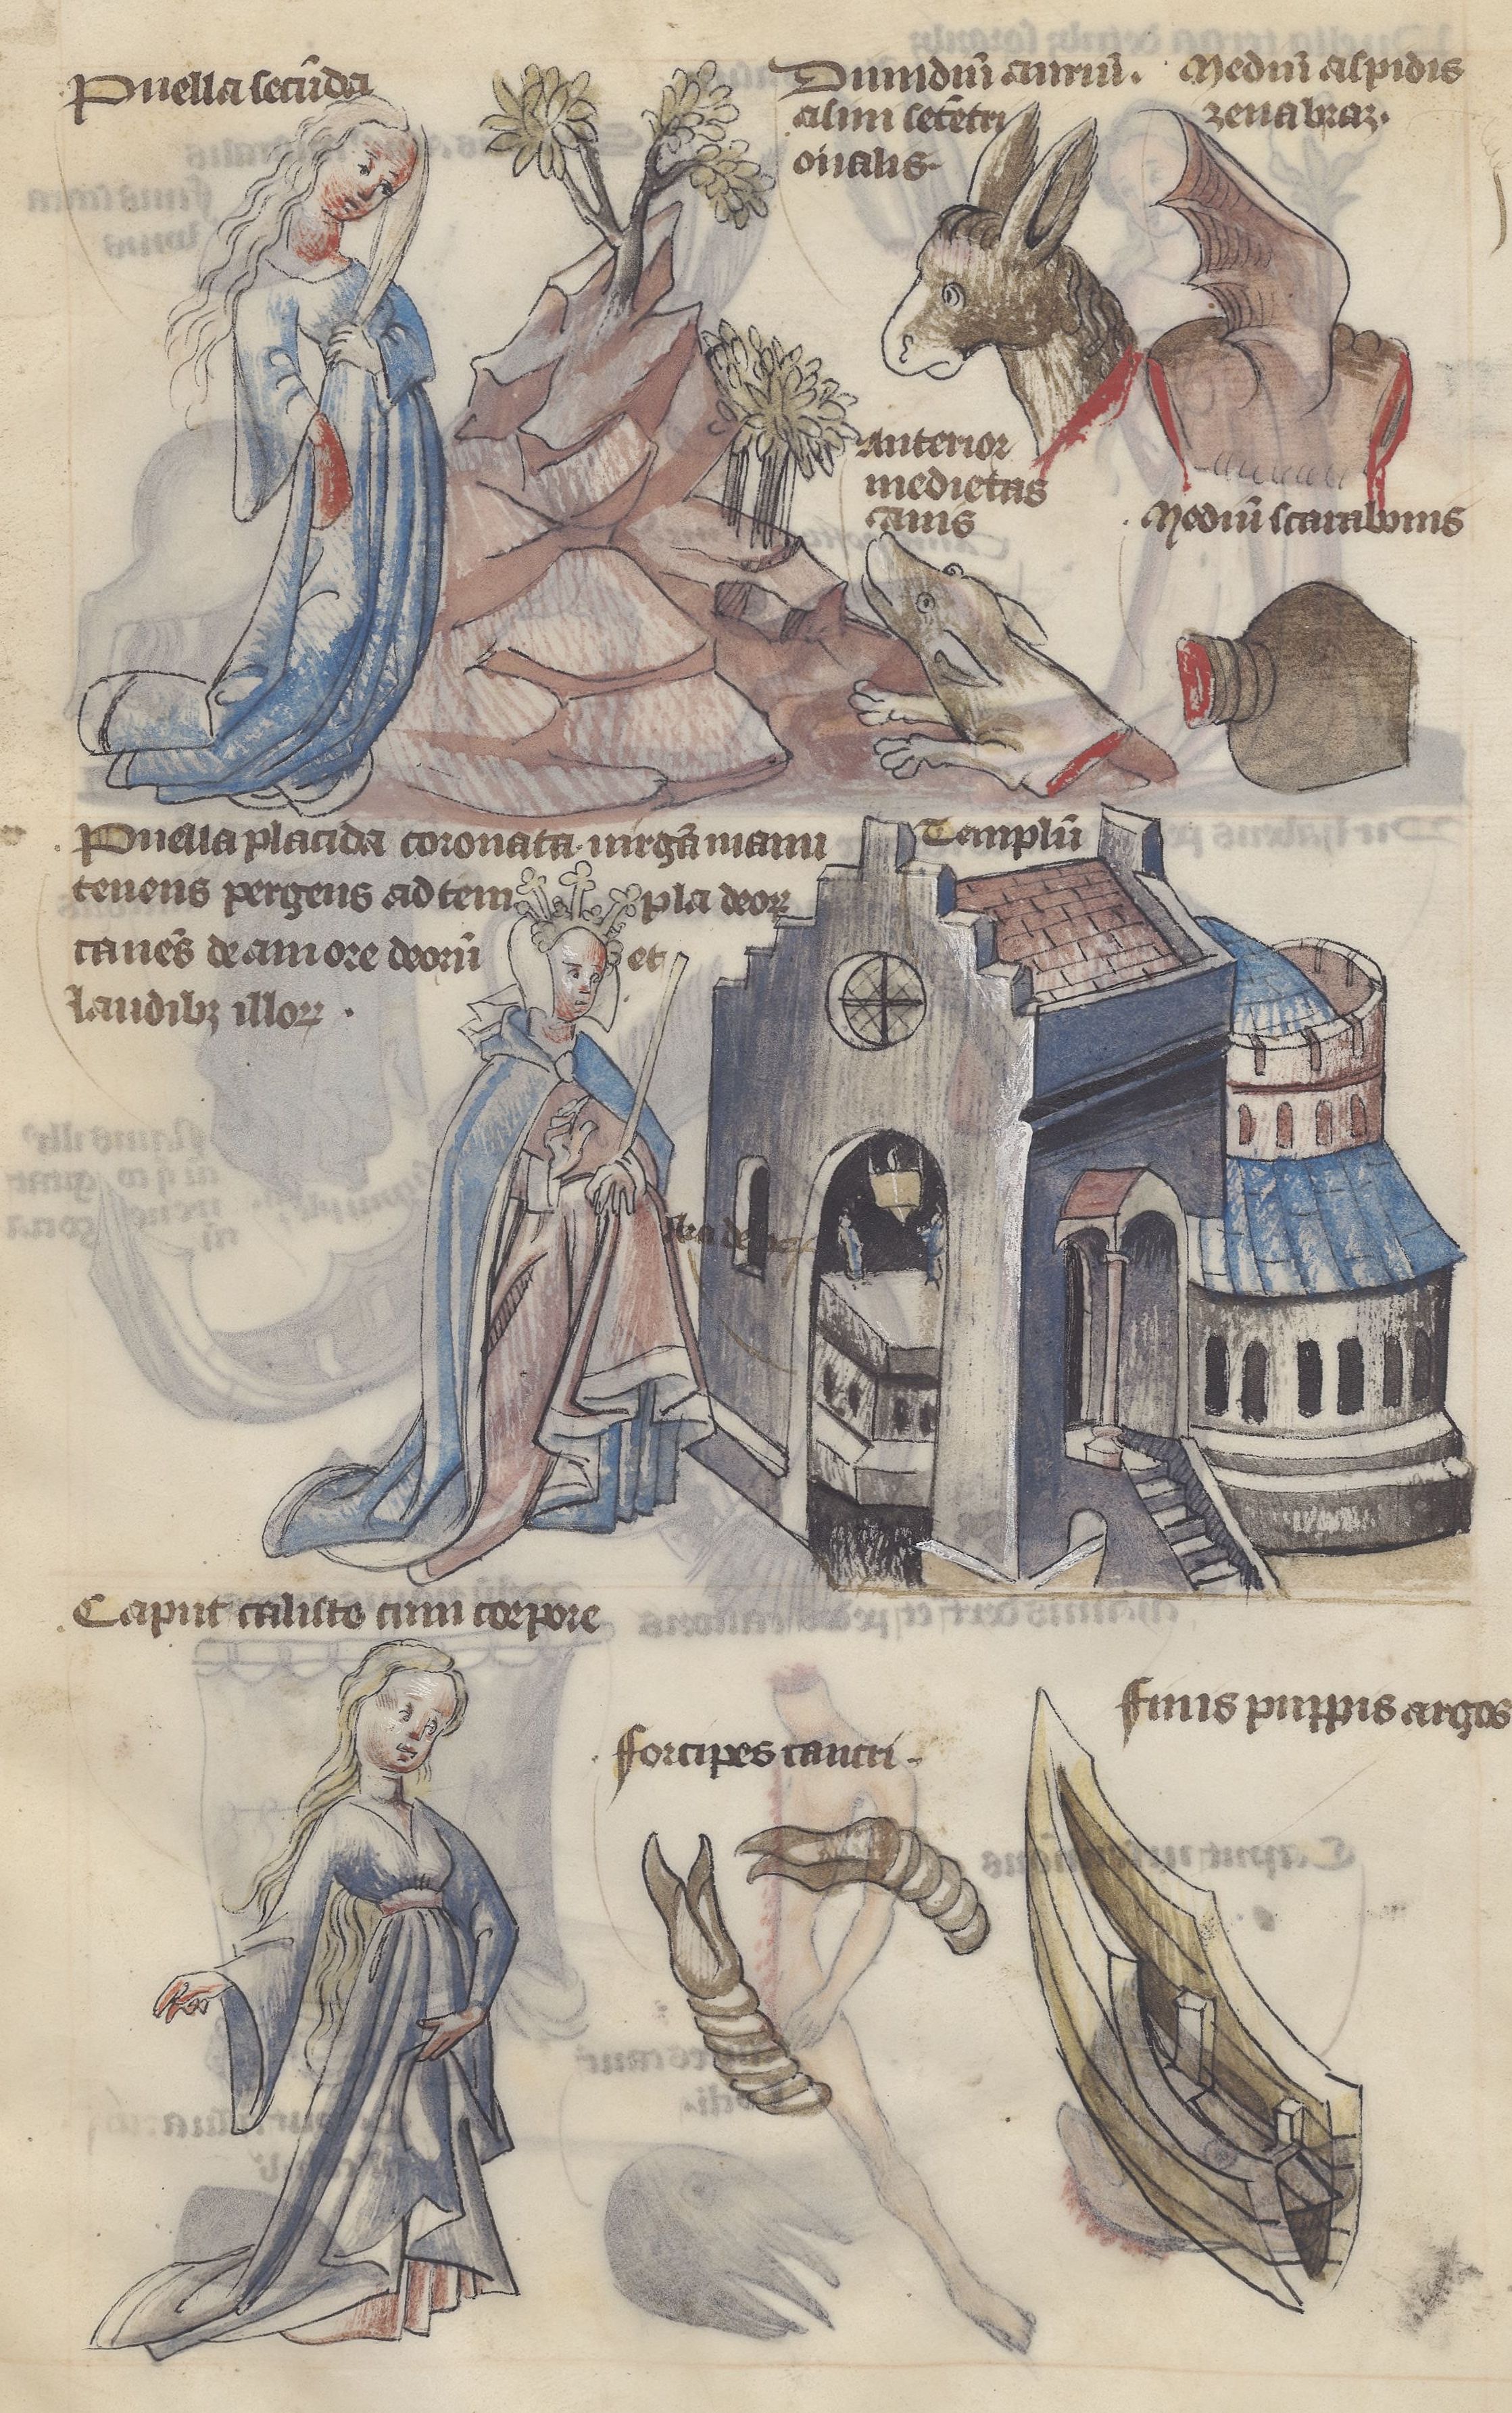 Puella secūda
Dimidiū aurium
asini septētri
onalis.
Mediū aspidis
zenabraz.
Anterior
medietas
canis
Mediū scarabonis
Puella placida coronata uirgā manu
tenens pergens ad templa deoꝝ
canēs de amore deorū et
laudibꝫ illoꝝ.
Templū
Caput calisto cum corpore
forcipes cancri.
finis puppis argos